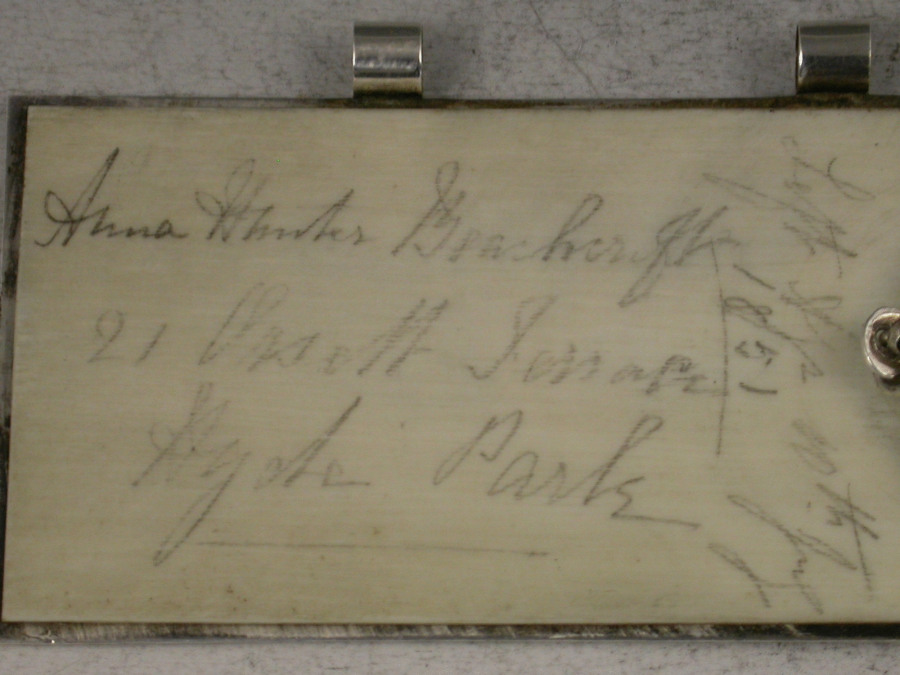 Anna Hunter Beachcroft
21 Orsett Terrace
Hyde Park
1851